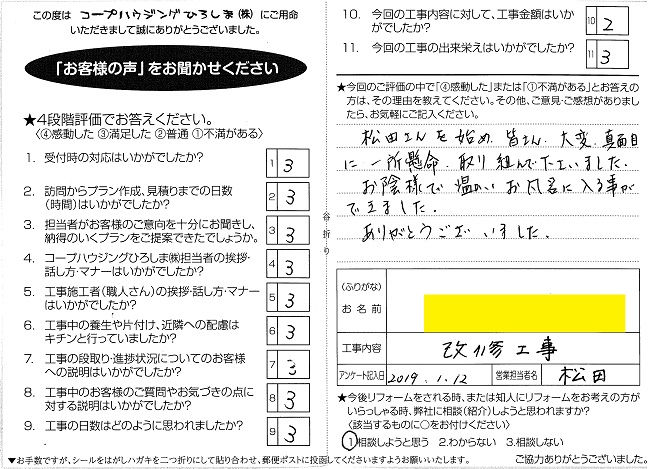 この度は コープハウジングひろしま(株) にご用命
いただきまして誠にありがとうございました。
「お客様の声」をお聞かせください
★4段階評価でお答えください。
〈④感動した ③満足した ②普通 ①不満がある〉
1. 受付時の対応はいかがでしたか?
1 3
2. 訪問からプラン作成、見積りまでの日数
(時間)はいかがでしたか?
2 3
3. 担当者がお客様のご意向を十分にお聞きし、
納得のいくプランをご提案できたでしょうか。
3 3
4. コープハウジングひろしま㈱担当者の挨拶・
話し方・マナーはいかがでしたか?
4 3
5. 工事施工者(職人さん)の挨拶・話し方・マナー
はいかがでしたか?
5 3
6. 工事中の養生や片付け、近隣への配慮は
キチンと行っていましたか?
6 3
7. 工事の段取り・進捗状況についてのお客様
への説明はいかがでしたか?
7 3
8. 工事中のお客様のご質問やお気づきの点に
対する説明はいかがでしたか?
8 3
9. 工事の日数はどのように思われましたか?
9 3
谷折り
10. 今回の工事内容に対して、工事金額はいか
がでしたか?
10 2
11. 今回の工事の出来栄えはいかがでしたか?
11 3
★今回のご評価の中で「④感動した」または「①不満がある」とお答え
の方は、その理由を教えてください。その他、ご意見・ご感想がありまし
たら、お気軽にご記入ください。
松田さんを始め、皆さん、大変、真面目
に一所懸命、取り組んで下さいました。
お陰様で温かいお風呂に入る事が
できました。
ありがとうございました。
(ふりがな)
お名前
工事内容 改修工事
アンケート記入日 2019.1.12 営業担当者名 松田
★今後リフォームをされる時、または知人にリフォームをお考えの方が
いらっしゃる時、弊社に相談(紹介)しようと思われますか?
〈該当するものに○をお付けください〉
①相談しようと思う 2.わからない 3.相談しない
▼お手数ですが、シールをはがしハガキを二つ折りにして貼り合わせ、郵便ポストに投函してくださいますようお願いいたします。 ご協力ありがとうございました。